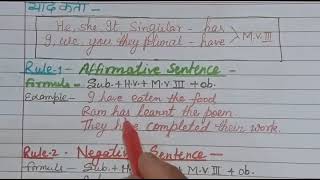 याद कर्ता –
He, she It Singular - has > M.V III
I, we, you they plural - have
Rule-1- Affirmative Sentence-
Formula- Sub.+H.V+M.V III + ob.
Example- I have eaten the food
Ram has learnt the poem
They have completed their work.
Rule-2- Negative Sentence-
Formula - Sub.+H.V + M.V III + ob.